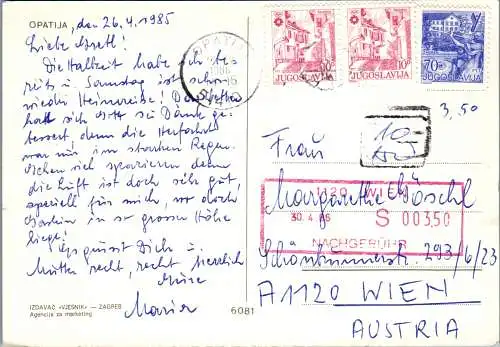 OPATIJA, den 26.4.1985
Liebe Gretl!
Die Halbzeit habe ich be-
reits u. Samstag ist schon
wieder Heimreise! Das Wetter
hat sich Gott sei Dank ge-
bessert denn die Herfahrt
war nur im starken Regen.
Gehen viel spazieren denn
die Luft ist doch sehr gut,
speziell für mich, wo doch
Gastein in so grosser Höhe
liege!
Es grüsst Dich u.
Mutter recht, recht herzlich
Maria
IZDAVAČ »VJESNIK« — ZAGREB
Agencija za marketing
6081
OPATIJA
10
JUGOSLAVIJA
10
JUGOSLAVIJA
70
JUGOSLAVIJA
3,50
10
Frau
Margarethe Göschl
1120 WIEN
30.4.85 S 00350
NACHGEBÜHR
Schönbrunnerstr. 293/6/23
A1120 WIEN
AUSTRIA